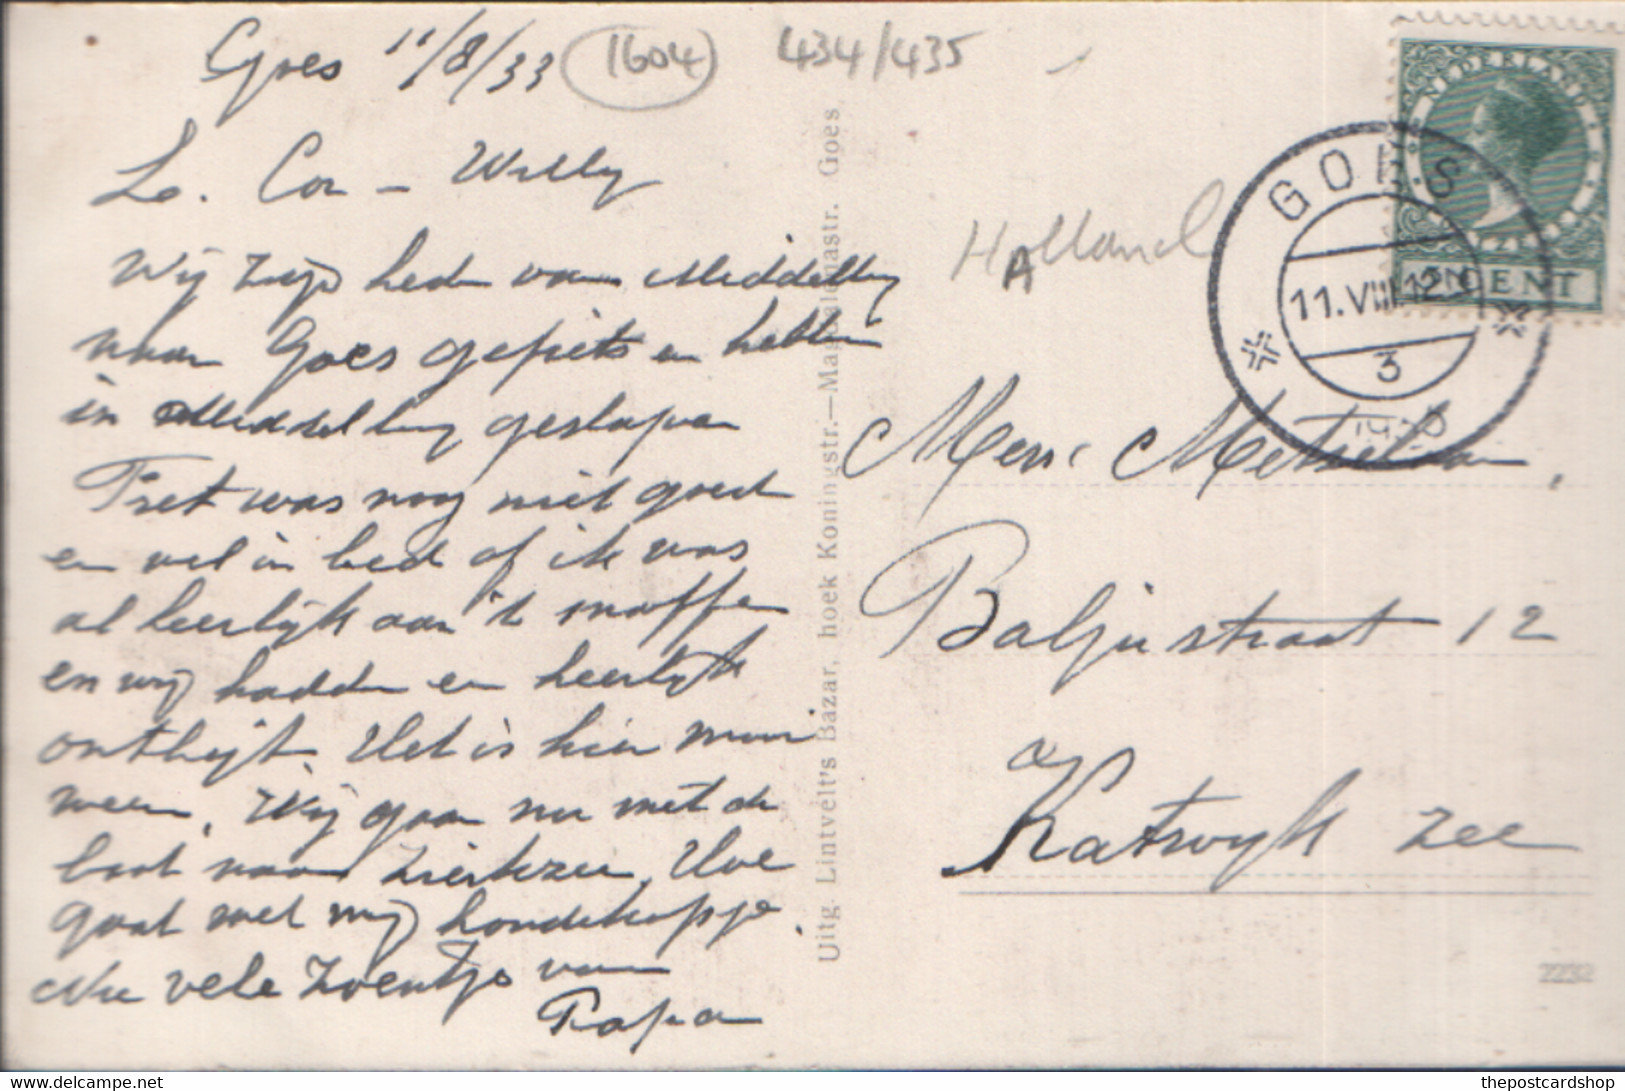 Goes 11/8/33
1604
434/435
L. Cor - Willy
Wij zijn heden van Middelburg
naar Goes gefietst en hebben
in Middelburg geslapen
Piet was nog niet goed
en wel in bed of ik was
al heerlijk aan 't maffen
en wij hadden een heerlijk
ontbijt. Het is hier mooi
weer. Wij gaan nu met de
boot naar Zierikzee. Hoe
gaat met mij hondekopje.
Nu vele zoentjes van
Papa
Uitg. Lintvelt's Bazar, hoek Koningstr.—Magdalenastr. Goes
Holland
A
NEDERLAND
CENT
GOES
11.VIII.12
3
Mej. Metselaar,
Baljustraat 12
a/
Katwyk zee
7732
delcampe.net
thepostcardshop